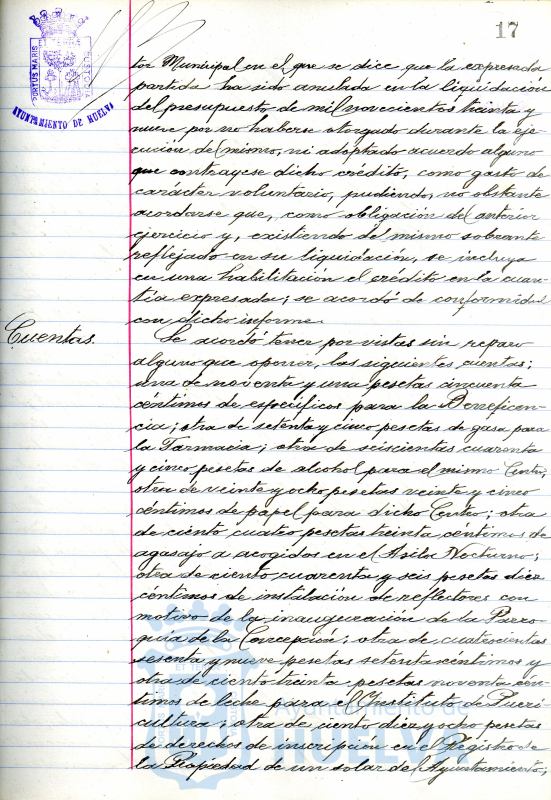 17
PORTUS MARIS CUSTODIA
AYUNTAMIENTO DE HUELVA
tor Municipal en el que se dice que la expresada
partida ha sido anulada en la liquidación
del presupuesto de mil novecientos treinta y
nueve por no haberse otorgado durante la eje-
cución del mismo, ni adoptado acuerdo alguno
que contrayese dicho crédito, como gasto de
carácter voluntario, pudiendo, no obstante
acordarse que, como obligación del anterior
ejercicio y, existiendo del mismo sobrante
reflejado en su liquidación, se incluya
en una habilitación el crédito en la cuan-
tía expresada; se acordó de conformidad
con dicho informe.
Cuentas.
Se acordó tener por vistas sin reparo
alguno que oponer, las siguientes cuentas;
una de noventa y una pesetas cincuenta
céntimos de específicos para la Beneficen-
cia; otra de setenta y cinco pesetas de gasa para
la Farmacia; otra de seiscientas cuarenta
y cinco pesetas de alcohol para el mismo Centro;
otra de veinte y ocho pesetas veinte y cinco
céntimos de papel para dicho Centro; otra
de ciento cuatro pesetas treinta céntimos de
agasajo a acogidos en el Asilo Nocturno;
otra de ciento cuarenta y seis pesetas diez
céntimos de instalación de reflectores con
motivo de la inauguración de la Parro-
quia de la Concepción; otra de cuatrocientas
sesenta y nueve pesetas setenta céntimos y
otra de ciento treinta pesetas noventa cén-
timos de leche para el Instituto de Pueri-
cultura; otra de ciento diez y ocho pesetas
de derechos de inscripción en el Registro de
la Propiedad de un solar del Ayuntamiento;
Ayuntamiento de
HUELVA